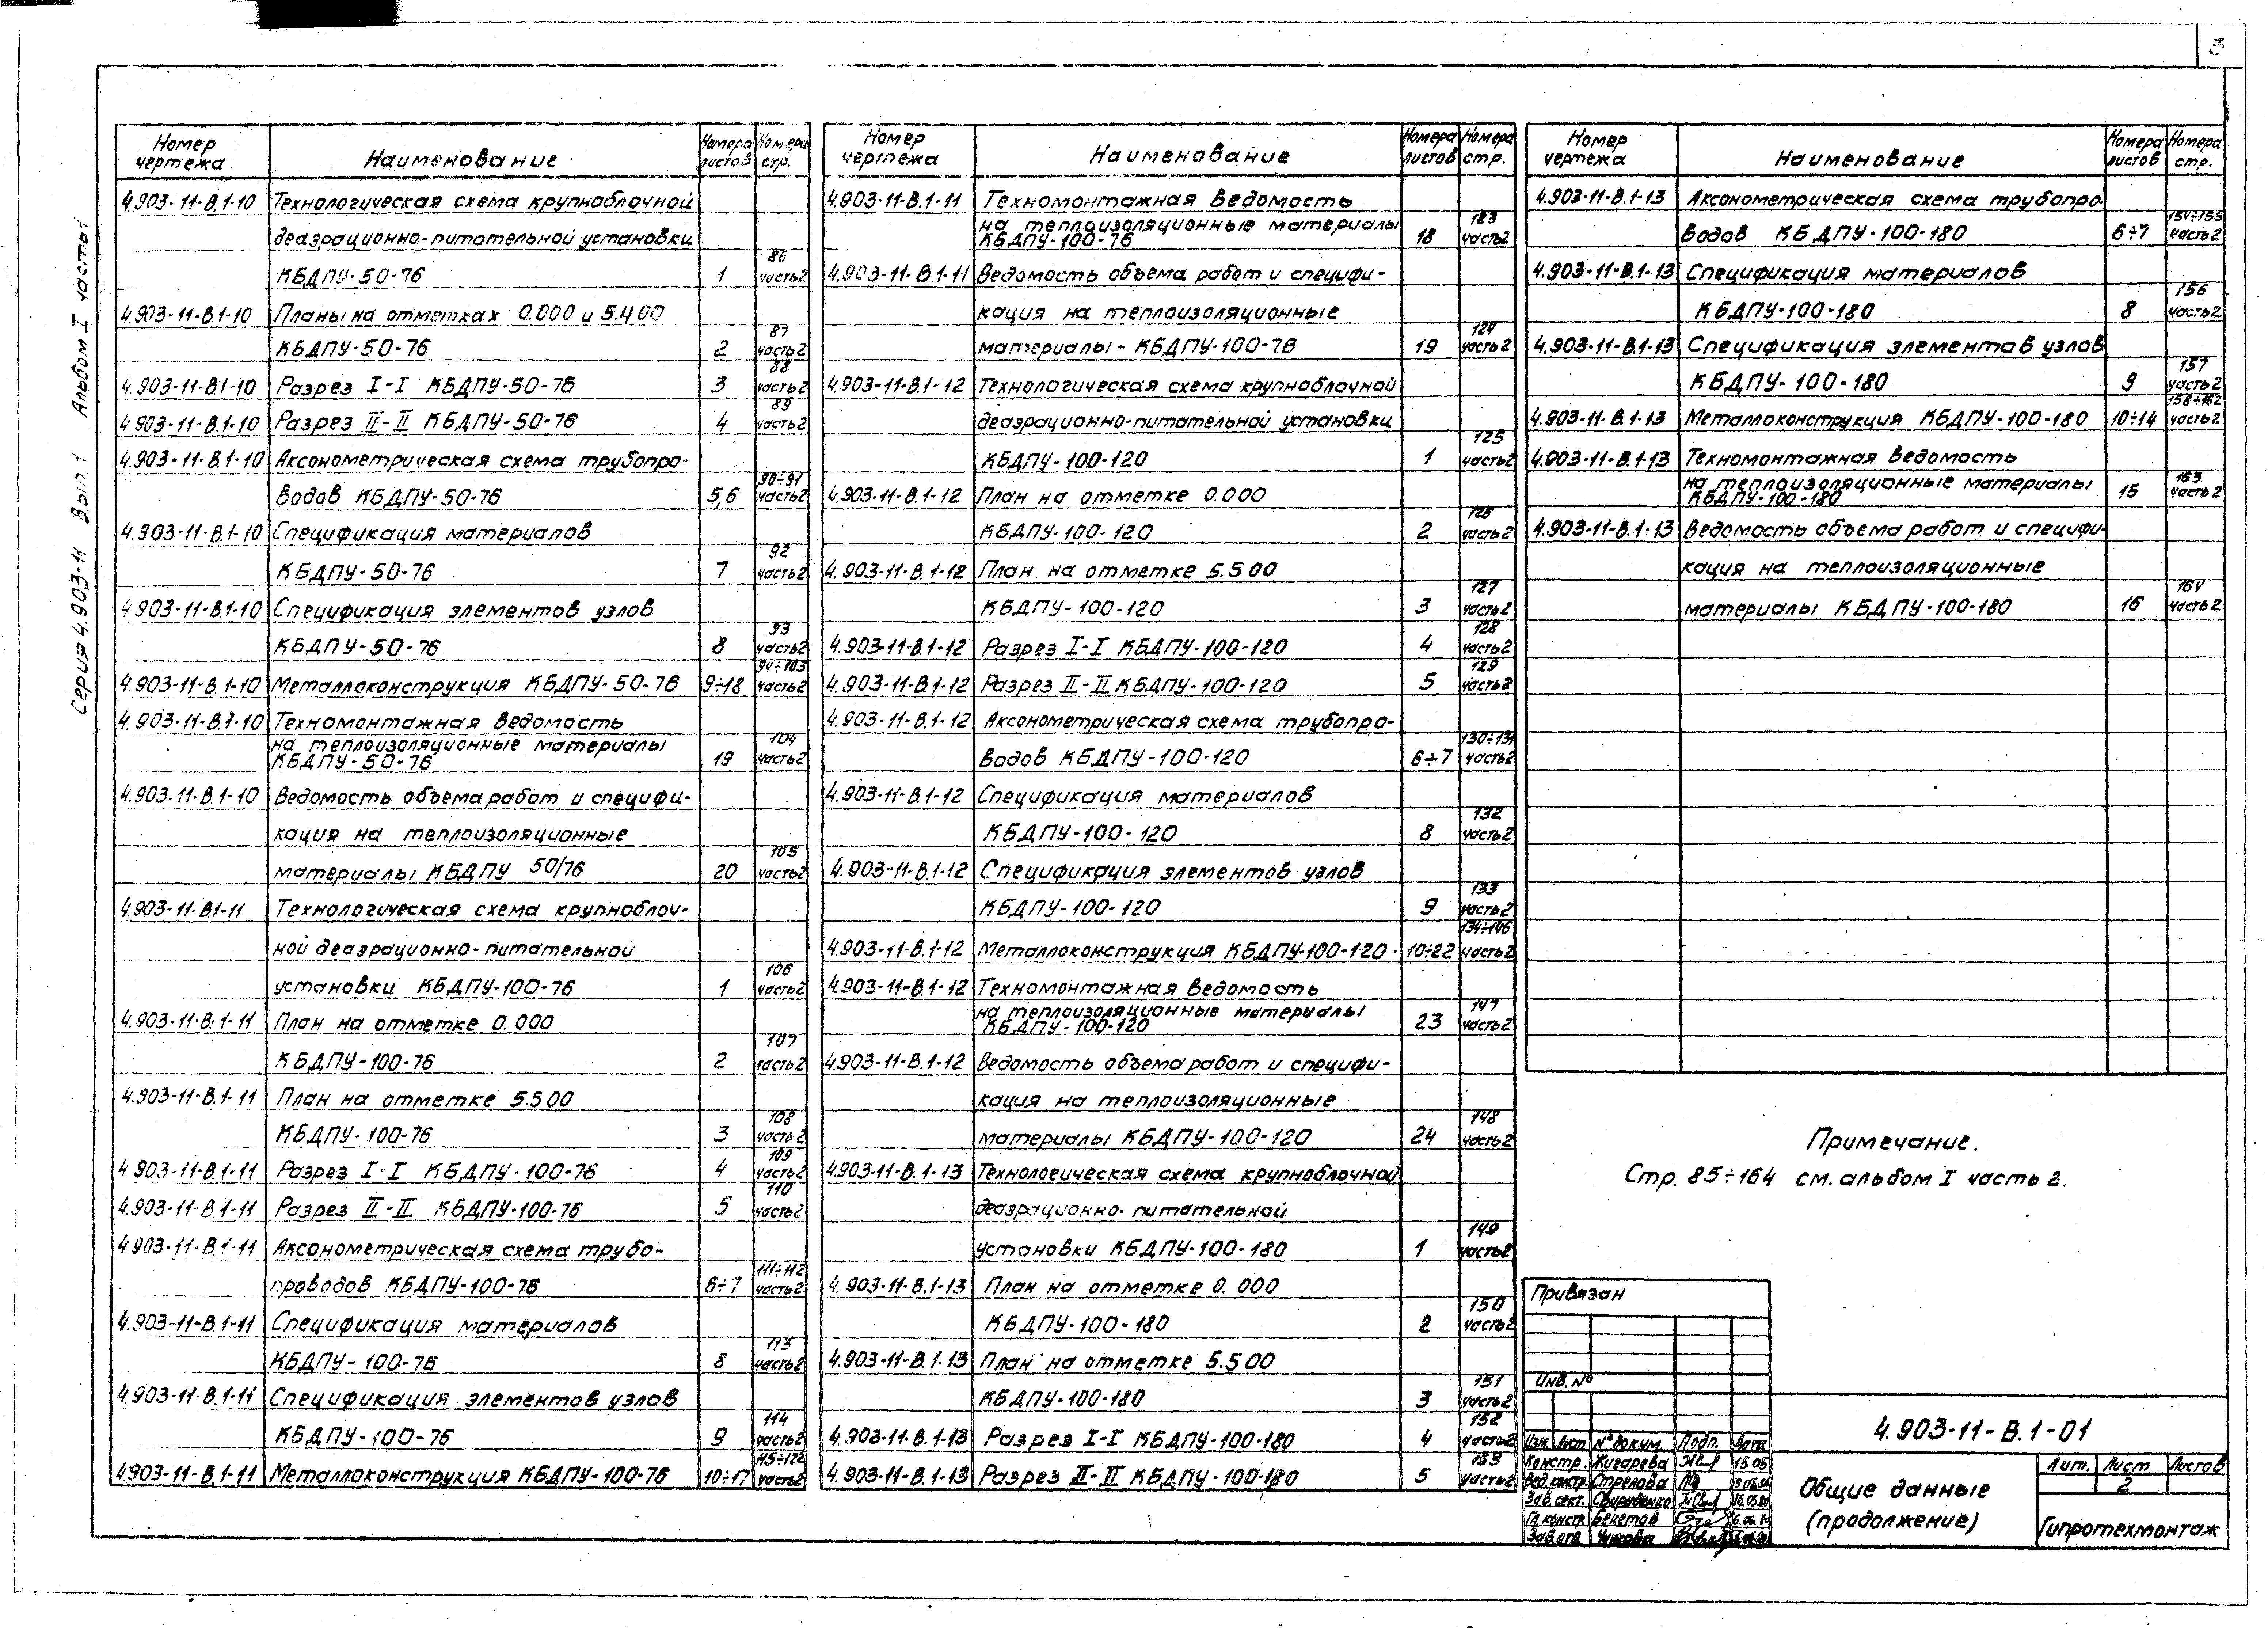 Серия 4.903-11 Вып.1 Альбом I часть 1
Номер чертежа Наименование Номера листов Номера стр.
4.903-11-В.1-10 Технологическая схема крупноблочной
деаэрационно-питательной установки
КБДПУ-50-76 1 86 часть2
4.903-11-В.1-10 Планы на отметках 0.000 и 5.400
КБДПУ-50-76 2 87 часть2
4.903-11-В.1-10 Разрез I-I КБДПУ-50-76 3 88 часть2
4.903-11-В.1-10 Разрез II-II КБДПУ-50-76 4 89 часть2
4.903-11-В.1-10 Аксонометрическая схема трубопро-
водов КБДПУ-50-76 5,6 90÷91 часть2
4.903-11-В.1-10 Спецификация материалов
КБДПУ-50-76 7 92 часть2
4.903-11-В.1-10 Спецификация элементов узлов
КБДПУ-50-76 8 93 часть2
4.903-11-В.1-10 Металлоконструкция КБДПУ-50-76 9÷18 94÷103 часть2
4.903-11-В.1-10 Техномонтажная ведомость
на теплоизоляционные материалы
КБДПУ-50-76 19 104 часть2
4.903-11-В.1-10 Ведомость объема работ и специфи-
кация на теплоизоляционные
материалы КБДПУ 50/76 20 105 часть2
4.903-11-В.1-11 Технологическая схема крупноблоч-
ной деаэрационно-питательной
установки КБДПУ-100-76 1 106 часть2
4.903-11-В.1-11 План на отметке 0.000
КБДПУ-100-76 2 107 часть2
4.903-11-В.1-11 План на отметке 5.500
КБДПУ-100-76 3 108 часть2
4.903-11-В.1-11 Разрез I-I КБДПУ-100-76 4 109 часть2
4.903-11-В.1-11 Разрез II-II КБДПУ-100-76 5 110 часть2
4.903-11-В.1-11 Аксонометрическая схема трубо-
проводов КБДПУ-100-76 6÷7 111÷112 часть2
4.903-11-В.1-11 Спецификация материалов
КБДПУ-100-76 8 113 часть2
4.903-11-В.1-11 Спецификация элементов узлов
КБДПУ-100-76 9 114 часть2
4.903-11-В.1-11 Металлоконструкция КБДПУ-100-76 10÷17 115÷122 часть2
Номер чертежа Наименование Номера листов Номера стр.
4.903-11-В.1-11 Техномонтажная ведомость
на теплоизоляционные материалы
КБДПУ-100-76 18 183 часть2
4.903-11-В.1-11 Ведомость объема работ и специфи-
кация на теплоизоляционные
материалы-КБДПУ-100-76 19 124 часть2
4.903-11-В.1-12 Технологическая схема крупноблочной
деаэрационно-питательной установки
КБДПУ-100-120 1 125 часть2
4.903-11-В.1-12 План на отметке 0.000
КБДПУ-100-120 2 126 часть2
4.903-11-В.1-12 План на отметке 5.500
КБДПУ-100-120 3 127 часть2
4.903-11-В.1-12 Разрез I-I КБДПУ-100-120 4 128 часть2
4.903-11-В.1-12 Разрез II-II КБДПУ-100-120 5 129 часть2
4.903-11-В.1-12 Аксонометрическая схема трубопро-
водов КБДПУ-100-120 6÷7 130÷131 часть2
4.903-11-В.1-12 Спецификация материалов
КБДПУ-100-120 8 132 часть2
4.903-11-В.1-12 Спецификация элементов узлов
КБДПУ-100-120 9 133 часть2
4.903-11-В.1-12 Металлоконструкция КБДПУ-100-120 10÷22 134÷146 часть2
4.903-11-В.1-12 Техномонтажная ведомость
на теплоизоляционные материалы
КБДПУ-100-120 23 147 часть2
4.903-11-В.1-12 Ведомость объема работ и специфи-
кация на теплоизоляционные
материалы КБДПУ-100-120 24 148 часть2
4.903-11-В.1-13 Технологическая схема крупноблочной
деаэрационно-питательной
установки КБДПУ-100-180 1 149 часть2
4.903-11-В.1-13 План на отметке 0.000
КБДПУ-100-180 2 150 часть2
4.903-11-В.1-13 План на отметке 5.500
КБДПУ-100-180 3 151 часть2
4.903-11-В.1-13 Разрез I-I КБДПУ-100-180 4 152 часть2
4.903-11-В.1-13 Разрез II-II КБДПУ-100-180 5 153 часть2
Номер чертежа Наименование Номера листов Номера стр.
4.903-11-В.1-13 Аксонометрическая схема трубопро-
водов КБДПУ-100-180 6÷7 154÷155 часть2
4.903-11-В.1-13 Спецификация материалов
КБДПУ-100-180 8 156 часть2
4.903-11-В.1-13 Спецификация элементов узлов
КБДПУ-100-180 9 157 часть2
4.903-11-В.1-13 Металлоконструкция КБДПУ-100-180 10÷14 158÷162 часть2
4.903-11-В.1-13 Техномонтажная ведомость
на теплоизоляционные материалы
КБДПУ-100-180 15 163 часть2
4.903-11-В.1-13 Ведомость объема работ и специфи-
кация на теплоизоляционные
материалы КБДПУ-100-180 16 164 часть2
Примечание.
Стр. 85÷164 см. альбом I часть 2.
Привязан
Инв. №
4.903-11-В.1-01
Изм. Лист № докум. Подп. Дата
Констр. Жигарева 15.05
Вед.констр. Стрелова
Зав.сект. Свириденко
Гл.констр. Бекетов
Зав.отд.
Общие данные
(продолжение)
Лит. Лист Листов
2
Гипротехмонтаж